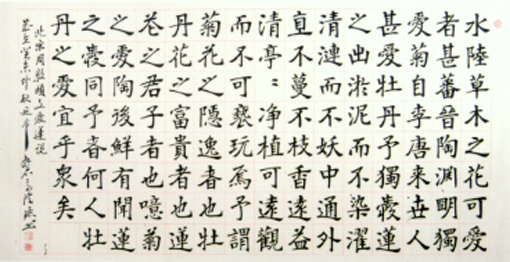 水陸草木之花可愛
者甚蕃晉陶淵明獨
愛菊自李唐来世人
甚愛牡丹予獨愛蓮
之出淤泥而不染濯
清漣而不妖中通外
直不蔓不枝香遠益
清亭〻净植可遠觀
而不可褻玩焉予謂
菊花之隱逸者也牡
丹花之富貴者也蓮
花之君子者也噫菊
之愛陶後鮮有聞蓮
之愛同予者何人牡
丹之愛宜乎衆矣
北宋周敦頤愛蓮説
癸未仲秋